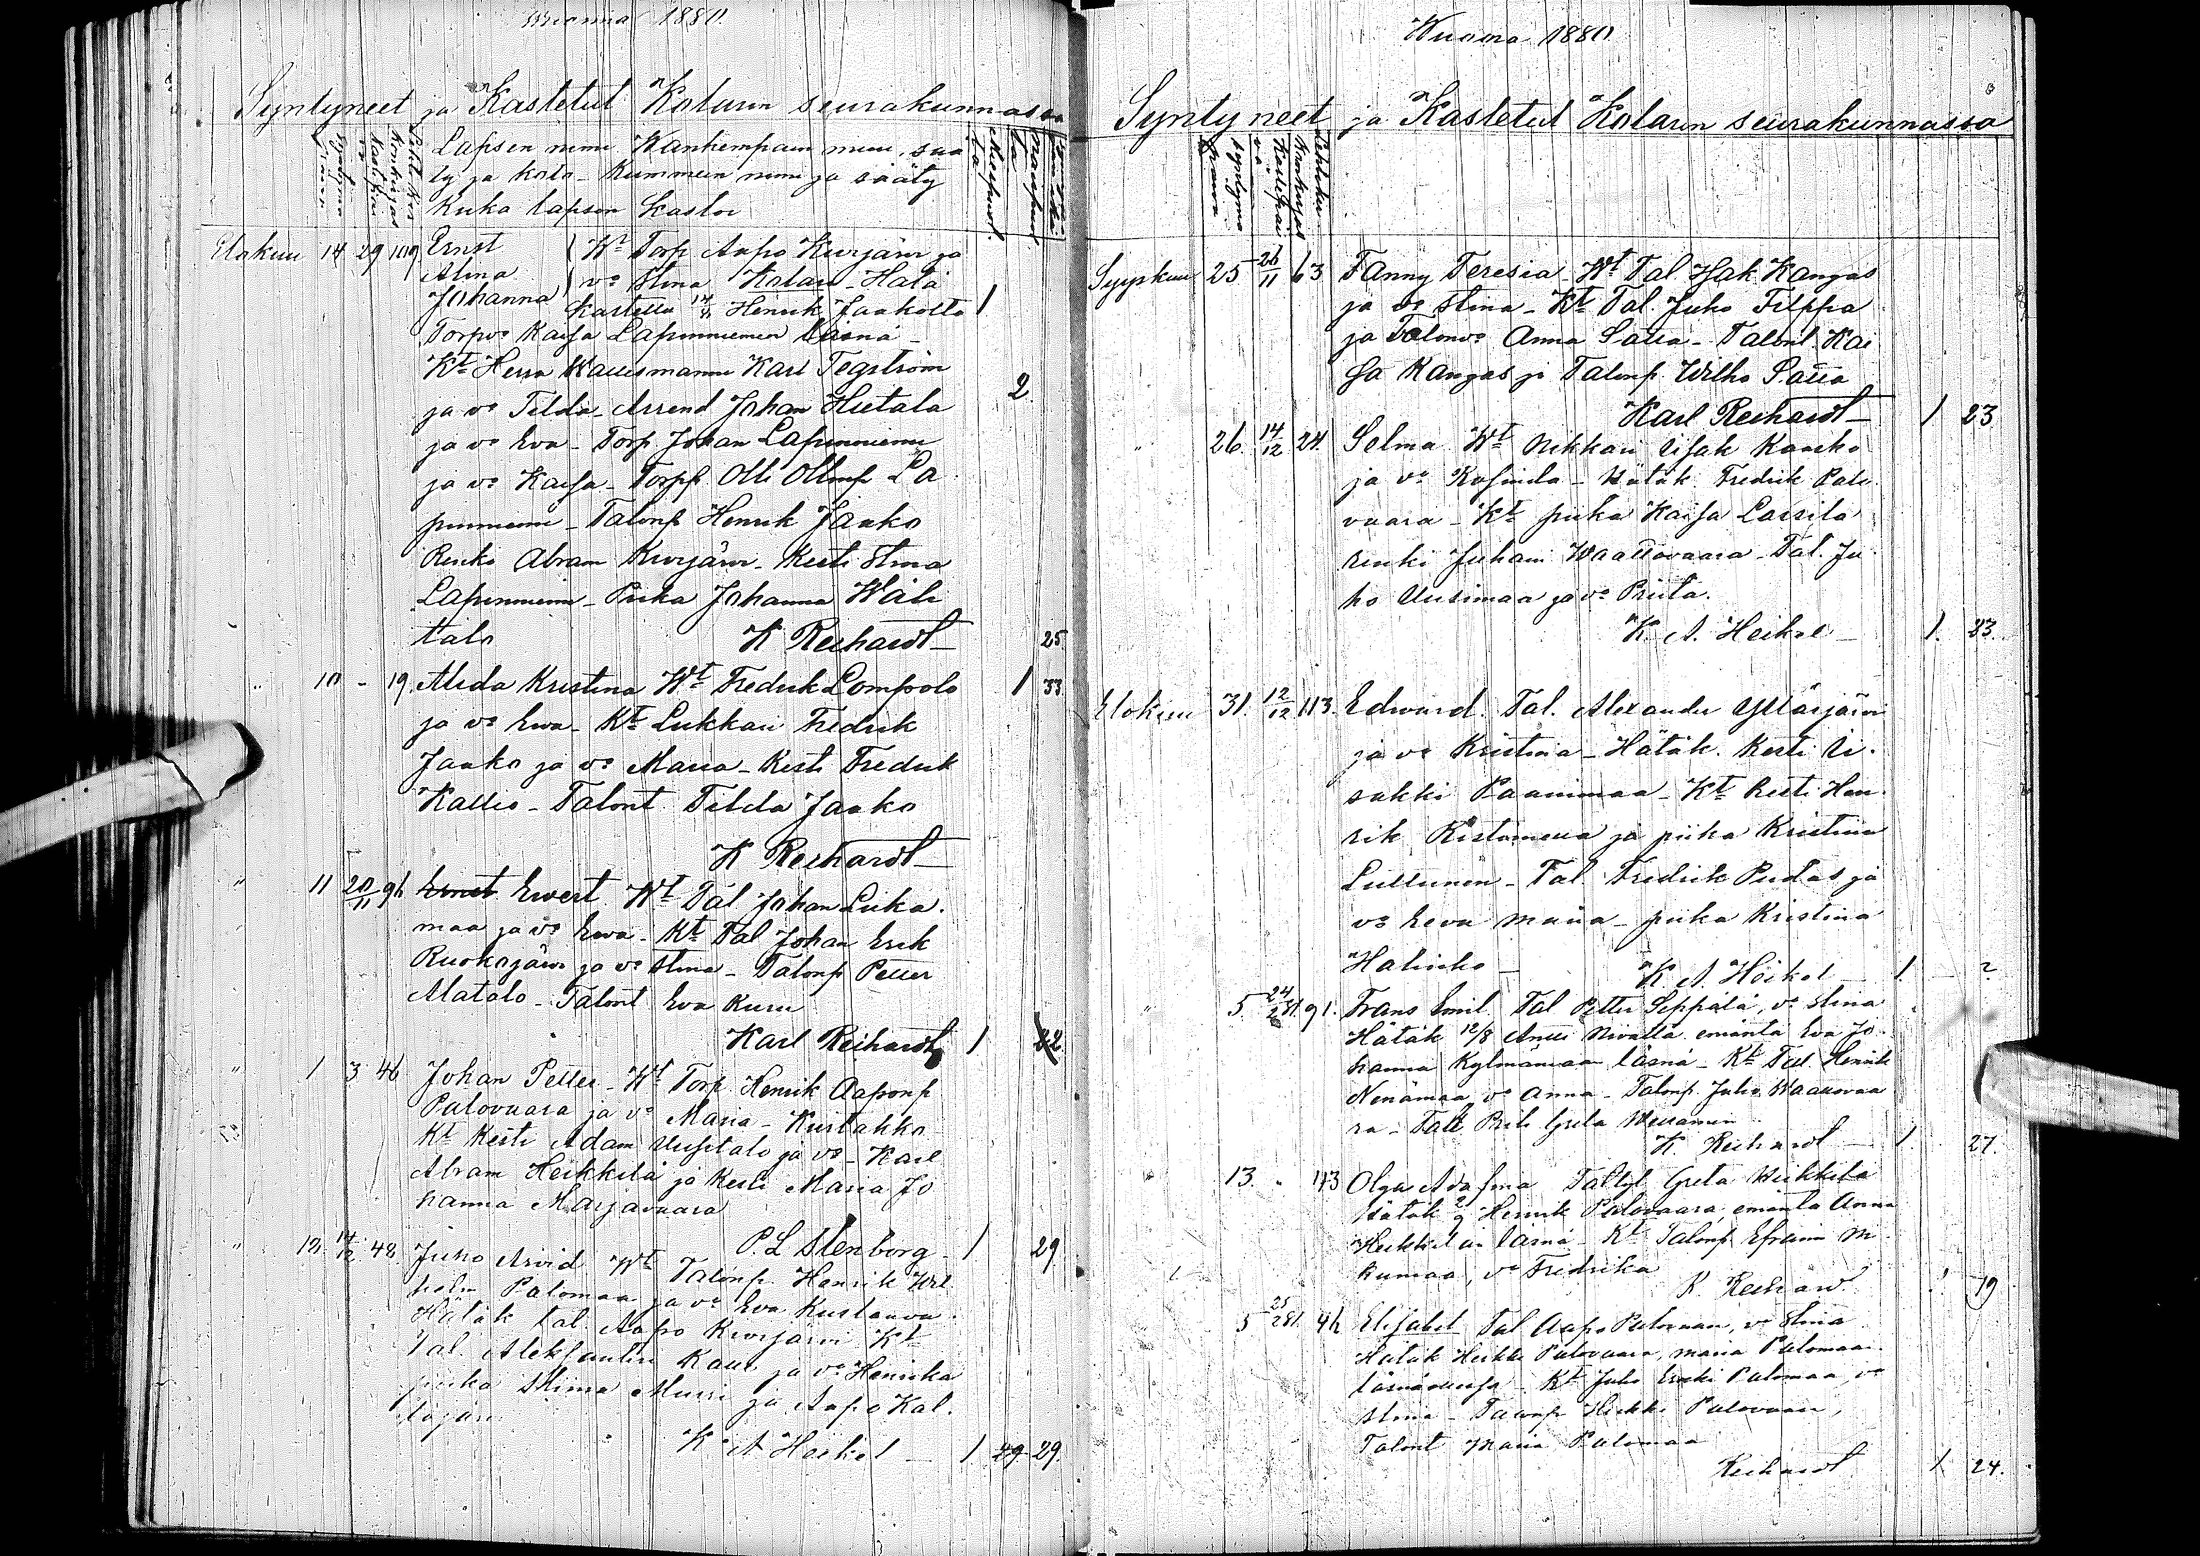 Wuonna 1880
Syntyneet ja Kastetut Kolarin seurakunnassa
Lapsen nimi. Wanhempain nimi, sää
ty ja koto - Kummein nimi ja sääty
Kuka lapsen kastoi
Elokuu 14 29 119 Ernst
Alma
Johanna
Wt Torp Aapo Kurjärvi ja
vo Stina Kolari - Hätä
kastettu Henrik Jaakolta 1
Torpvo Kaisa Lapinniemen läsnä -
Kt Herra Wallesmanni Karl Tegström
ja vo Tilda - Arrend Johan Hietala 2
ja vo Eva - Torp Johan Lapinniemi
ja vo Kaisa - Torpp Olli Ollinp La
pinniemi - Talonp Henrik Jaako
Renki Abram Kurjärvi - Kesti Stina
Lapinniemi - Piika Johanna Wäli
talo K Reihardt 25
" 10 - 19. Alida Kristina Wt Fredrik Lompolo 1 33
ja vo Ewa - Kt Lukkari Fredrik
Jaako ja vo Maria - Kesti Fredrik
Kallio - Talont Tilda Jaako
K Reihardt
" 11 20/11 91 Ernst Ewert Wt Tal Johan Liika
maa ja vo Ewa - Kt Tal Johan Erik
Ruokojärvi ja vo Stina - Talonp Petter
Alatalo - Talont Eva Kuru
Karl Reihardt 1 32
" 1 3 46 Johan Petter - Wt Torp Henrik Aaponp
Palovaara ja vo Maria - Kurtakko
Kt Kesti Adam Uusitalo ja vo - Karl
Abram Heikkilä ja Kesti Maria Jo
hanna Marjavaara
P. L Stenborg 1 29
" 12. 14/12 48. Juho Arvid Wt Talonp. Henrik Wil
helm Palomaa ja vo Eva Kustaava
Hätäk tal. Aapo Kurjärvi Kt
Tal. Aleksanteri Kaur ja vo Henrika
piika Miina Murri ja Aapo Kal.
tojärvi
K A Heikel 1 29 29.
Wuonna 1880
Syntyneet ja Kastetut Kolarin seurakunnassa
Syyskuu 25 26/11 63 Fanny Teresia Wt Tal Isak Kangas
ja vo Stina - Kt Tal. Juho Filppa
ja Talonvo Anna Satta - Talont. Kai
sa Kangas ja Talonp Wilho Satta
Karl Reihardt 1 23
" 26. 14/12 24. Selma Wt Nikkari Iisak Kaasko
ja vo Kosinda - Hätäk Fredrik Palo
vaara - Kt piika Kaisa Lassila
renki Juhani Waattovaara - Tal. Ju
ho Uusimaa ja vo Priita.
K. A. Heikel 1. 23.
Elokuu 31. 12/12 113. Edward. Tal. Alexander Ylläsjärvi
ja vo Kristina - Hätäk. Kesti Ii.
sakki Paanimaa - Kt Kesti Hen.
rik Ristimella ja piika Kristiina
Lullunen - Tal. Fredrik Pudas ja
vo Eeva Maria - piika Kristiina
Haliseko
K A Heikel 1 2
" 5 24/2 81 91. Frans Emil Tal Petter Seppälä, vo Stina
Hätäk 12/8 Antti Nivalta emäntä Eva Jo
hanna Kylmämaan läsnä - Kt Tal Henrik
Nenämaa vo Anna - Talonp. Juho Waattovaa
ra - Talt Briti Greta
K. Reihardt 1. 27.
13. " 113 Olga Adasina Taltyt Greta Heikkilä
Hätäk Henrik Palovaara, emäntä Anna
Heikkilän läsnä - Kt Talonp Efraim
kumaa, vo Fredrika
K. Reihard 1 19
5 25/2 81. 42 Elisabet Tal Aapo Palomaa, vo Stina
Hätäk Heikki Palovaara, Maria Palomaa
läsnäollessa - Kt Juho Erkki Palomaa, vo
Stina - Talonp Heikki Palovaara,
Talont Maria Palomaa
Reihardt 1. 24.